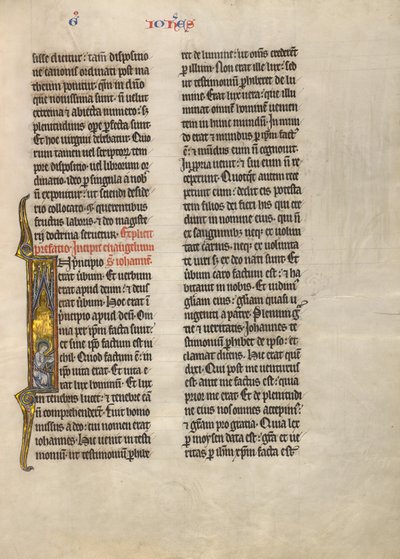 IOHES
fuisse dicitur: tam dispositio
ne canonis ordinati post ma
theum ponitur qm in dno
que nouissima sunt n uelut
extrema et abiecta numero: s;
plenitudinis opere pfecta sunt.
Et hoc uirgini debebatur. Quo
rum tamen uel scriptor tem
pore dispositio uel librorum or
dinatio ideo p singula a nob
n exponitur: ut sciendi deside
rio collocato & querentibus
fructus laboris & deo magiste
rij doctrina seruetur. Explicit
prefatio. Incipit euangelium
In principio S iohannem
erat ubum. Et uerbum
erat apud deum: & deus
erat ubum. Hoc erat i
pncipio apud deum. Om
nia per ipm facta sunt:
et sine ipso factum est ni
chil. Quod factum e: in
ipso uita erat. Et uita e
rat lux hominum. Et lux
in tenebris lucet: & tenebre ea
n comprehenderunt. Fuit homo
missus a deo: cui nomen erat
iohannes. Hic uenit in testi
monium: ut testimonium phibe
ret de lumine: ut omnes crederent
p illum. Non erat ille lux: sed
ut testimonium phiberet de lu
mine. Erat lux uera: que illu
minat omnem hominem uenien
tem in hunc mundum. In mun
do erat & mundus p ipm factus
e: & mundus eum n cognouit.
In ppria uenit: & sui eum n re
ceperunt. Quotquot autem rece
perunt eum: dedit eis potesta
tem filios dei fieri hiis qui cre
dunt in nomine eius. qui n
ex sanguinibus neq; ex uolun
tate carnis. neq; ex uolunta
te uiri s; ex deo nati sunt. Et
ubum caro factum est: & ha
bitauit in nobis. Et uidimus
gliam eius: gliam quasi u
nigeniti a patre. Plenum g
ne & ueritatis. Iohannes te
stimonium phibet de ipso: et
clamat dicens. Hic erat quem
dixi. Qui post me uenturus
est ante me factus est: quia
prior me erat. Et de plenitudi
ne eius nos omnes accepimus:
& gram pro gratia. Quia lex
p moysen data est: gra et ue
ritas p ihm xpm facta est.